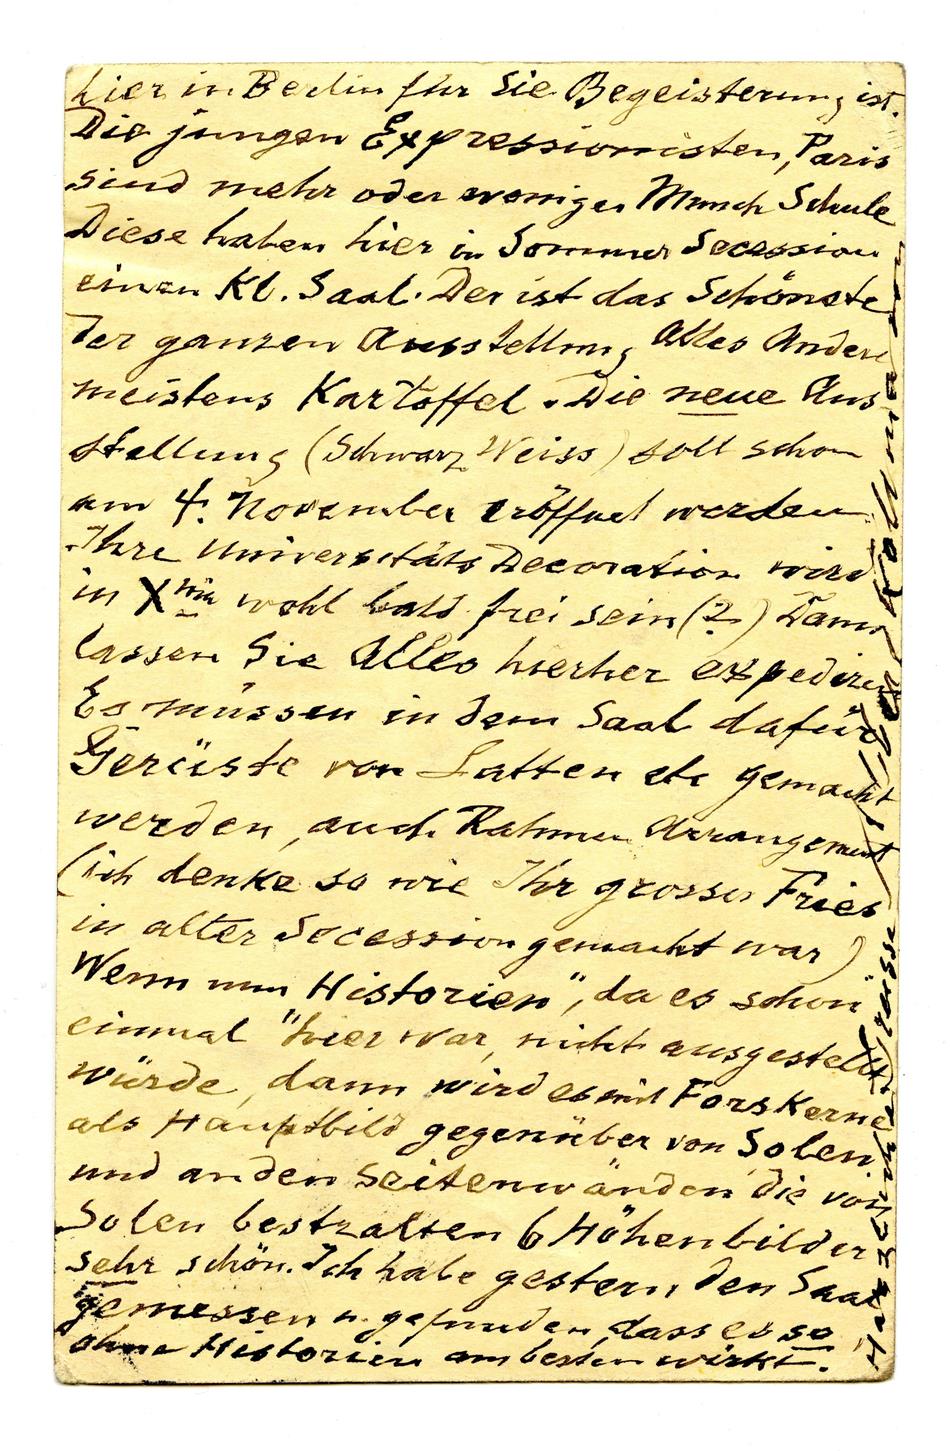 hier in Berlin für Sie Begeisterung ist.
Die jungen Expressionisten, Paris
sind mehr oder weniger Munch Schule
Diese haben hier in Sommer Secession
einen Kl. Saal. Der ist das Schönste
der ganzen Ausstellung, Alles Andere
meistens Kartoffel. Die neue Aus
stellung (Schwarz Weiss) soll schon
am 4. November eröffnet werden
Ihre Universitäts Decoration wird
in X wohl bald frei sein (?) Dann
lassen Sie Alles hierher expediren
Es müssen in dem Saal dafür
Gerüste von Latten etc gemacht
werden, auch Rahmen Arrangement
(ich denke so wie Ihr grosser Fries
in alter Secession gemacht war)
Wenn nun Historien", da es schon
einmal "hier war, nicht ausgestellt
würde, dann wird es mit Forskerne
als Hauptbild gegenüber von Solen
und an den Seitenwänden die von
Solen bestralten 6 Höhenbilder
sehr schön. Ich habe gestern den Saal
gemessen u. gefunden, dass es so
ohne Historien am besten wirkt.
Herzliche Grüsse Ihr